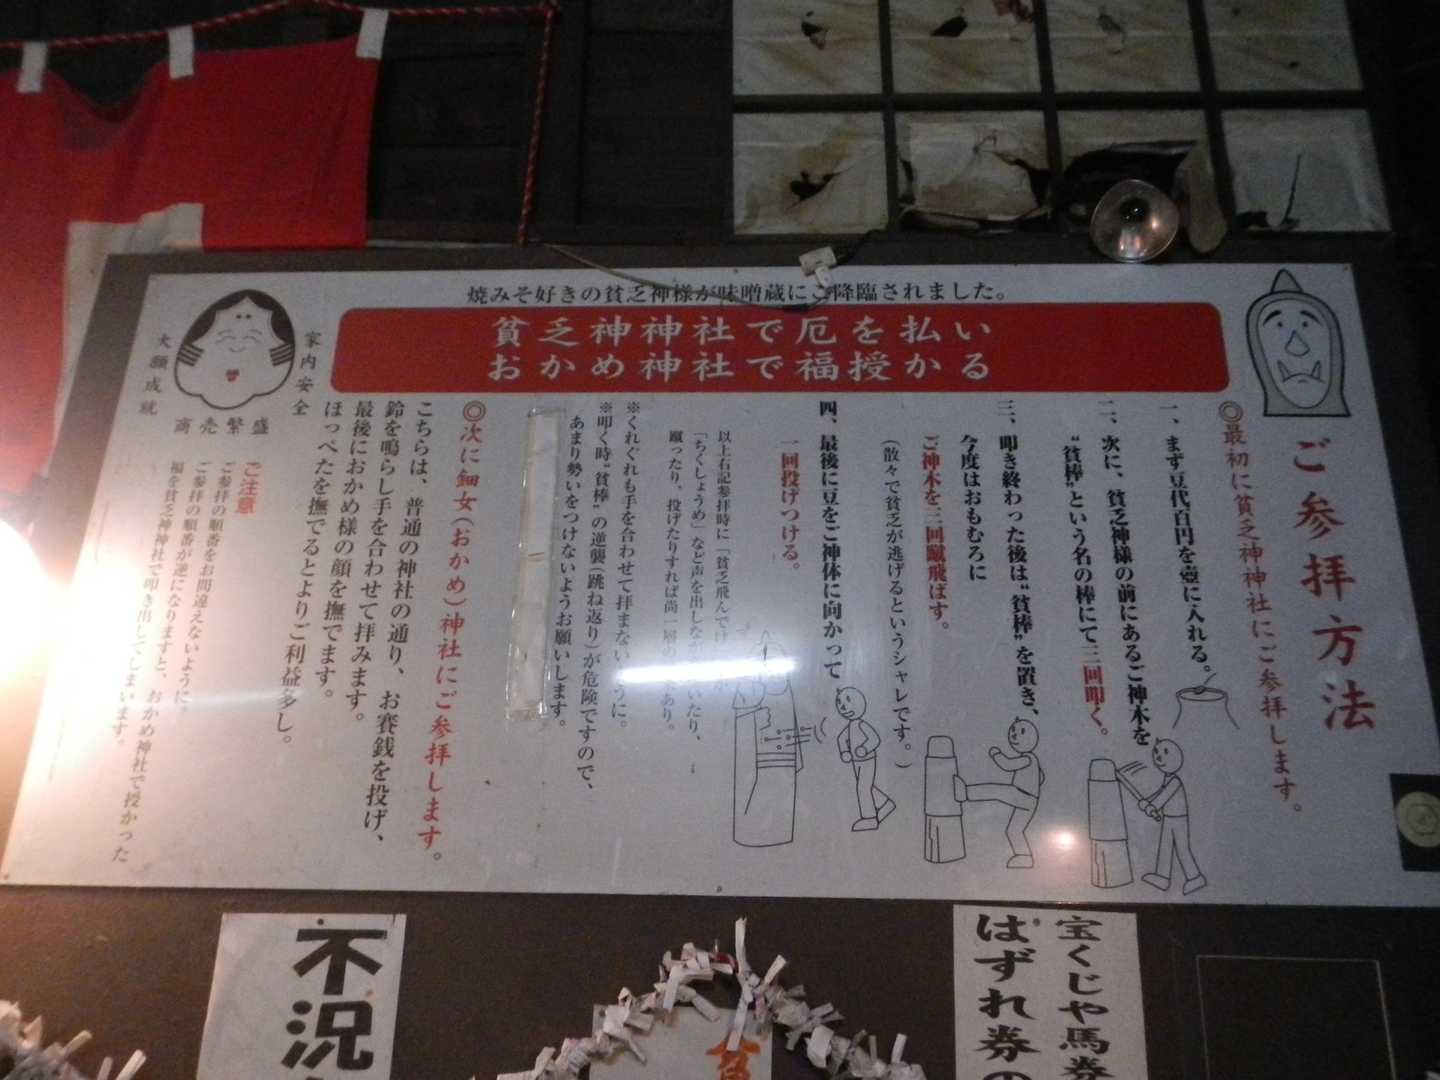 焼みそ好きの貧乏神様が味噌蔵にご降臨されました。
貧乏神神社で厄を払い
おかめ神社で福授かる
ご参拝方法
◎最初に貧乏神神社にご参拝します。
一、まず豆代百円を壺に入れる。
二、次に、貧乏神様の前にあるご神木を
“貧棒”という名の棒にて三回叩く。
三、叩き終わった後は“貧棒”を置き、
今度はおもむろに
ご神木を三回蹴飛ばす。
(散々で貧乏が逃げるというシャレです。)
四、最後に豆をご神体に向かって
一回投げつける。
以上右記参拝時に「貧乏飛んでけ
「ちくしょうめ」など声を出しながら叩いたり、
蹴ったり、投げたりすれば尚一層の
あり。
※くれぐれも手を合わせて拝まないように。
※叩く時“貧棒”の逆襲(跳ね返り)が危険ですので、
あまり勢いをつけないようお願いします。
◎次に鈿女(おかめ)神社にご参拝します。
こちらは、普通の神社の通り、お賽銭を投げ、
鈴を鳴らし手を合わせて拝みます。
最後におかめ様の顔を撫でます。
ほっぺたを撫でるとよりご利益多し。
家内安全
商売繁盛
大願成就
ご注意
ご参拝の順番をお間違えないように。
ご参拝の順番が逆になりますと、おかめ神社で授かった
福を貧乏神神社で叩き出してしまいます。
不況
貧
宝くじや馬券
はずれ券の